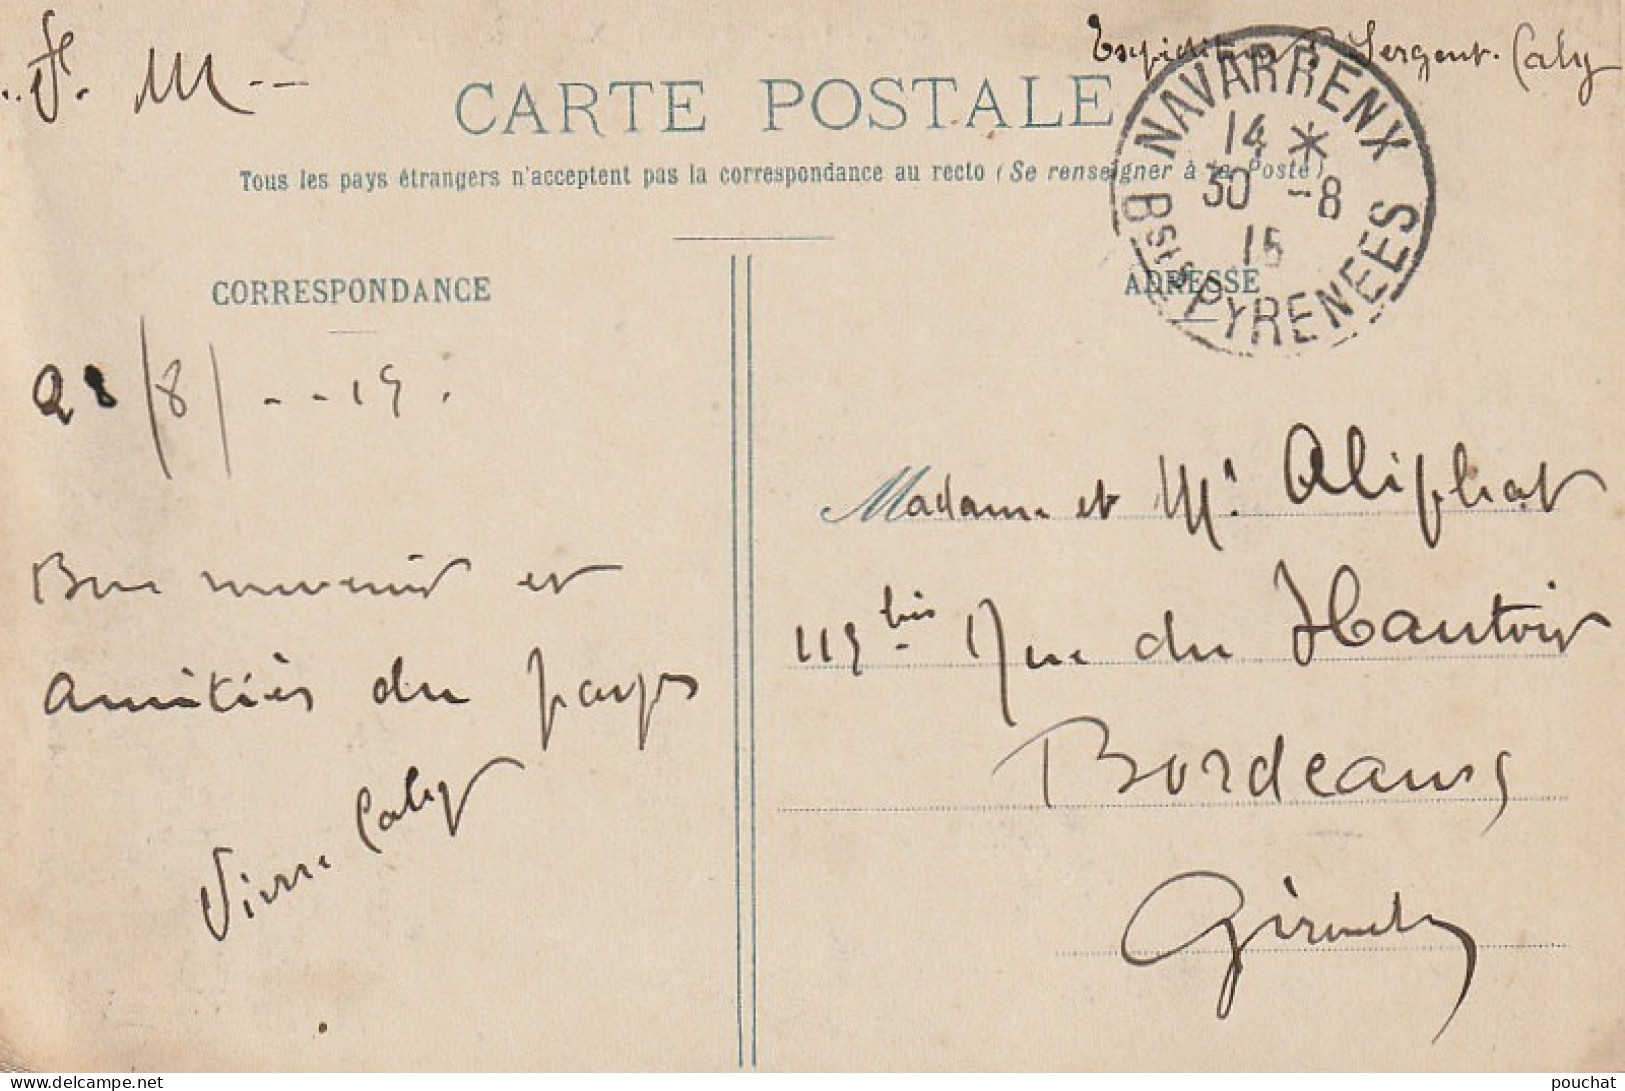 F. M
Expéditeur Sergent Caly
CARTE POSTALE
Tous les pays étrangers n'acceptent pas la correspondance au recto (Se renseigner à la Poste)
NAVARRENX
14 *
30 -8
15
Bses PYRENEES
CORRESPONDANCE
ADRESSE
28/8/ - - 15.
Bon souvenir et
amitiés du pays
Pierre Caly
Madame et Mr. Aliphat
115 bis Rue du Hautoir
Bordeaux
Gironde
pouchat